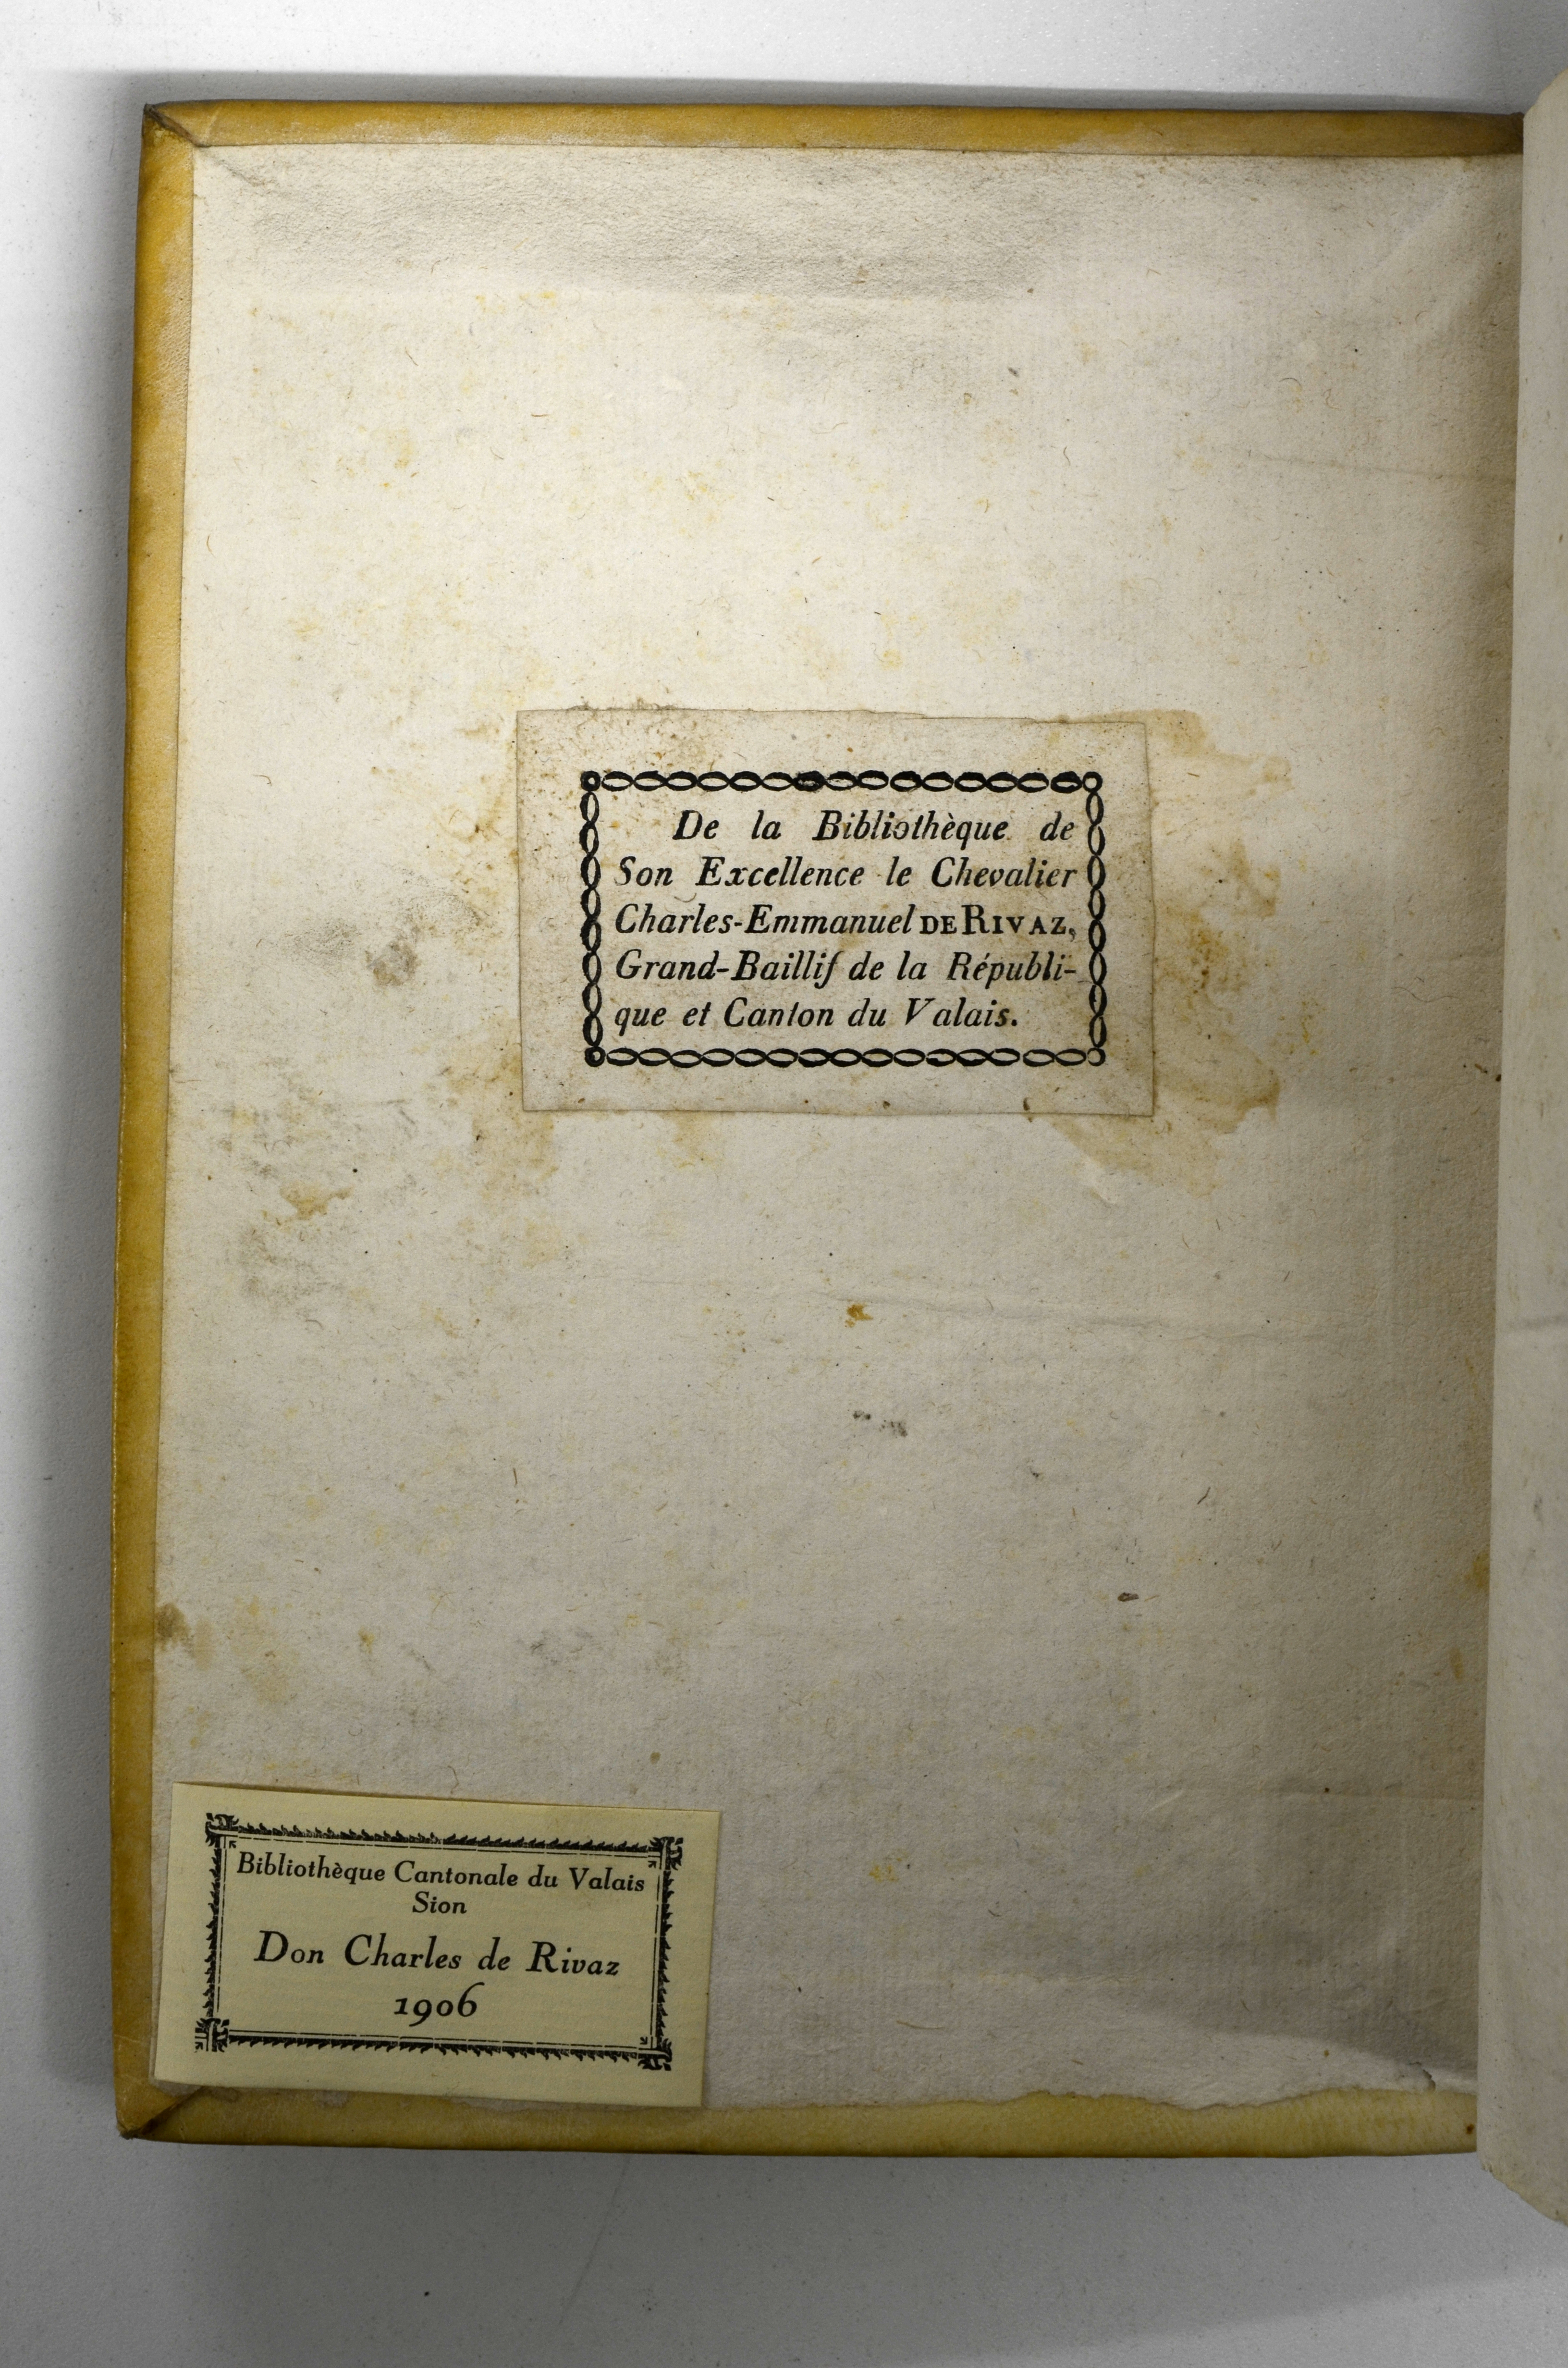 De la Bibliothèque de
Son Excellence le Chevalier
Charles-Emmanuel DE RIVAZ,
Grand-Baillif de la Républi-
que et Canton du Valais.
Bibliothèque Cantonale du Valais
Sion
Don Charles de Rivaz
1906